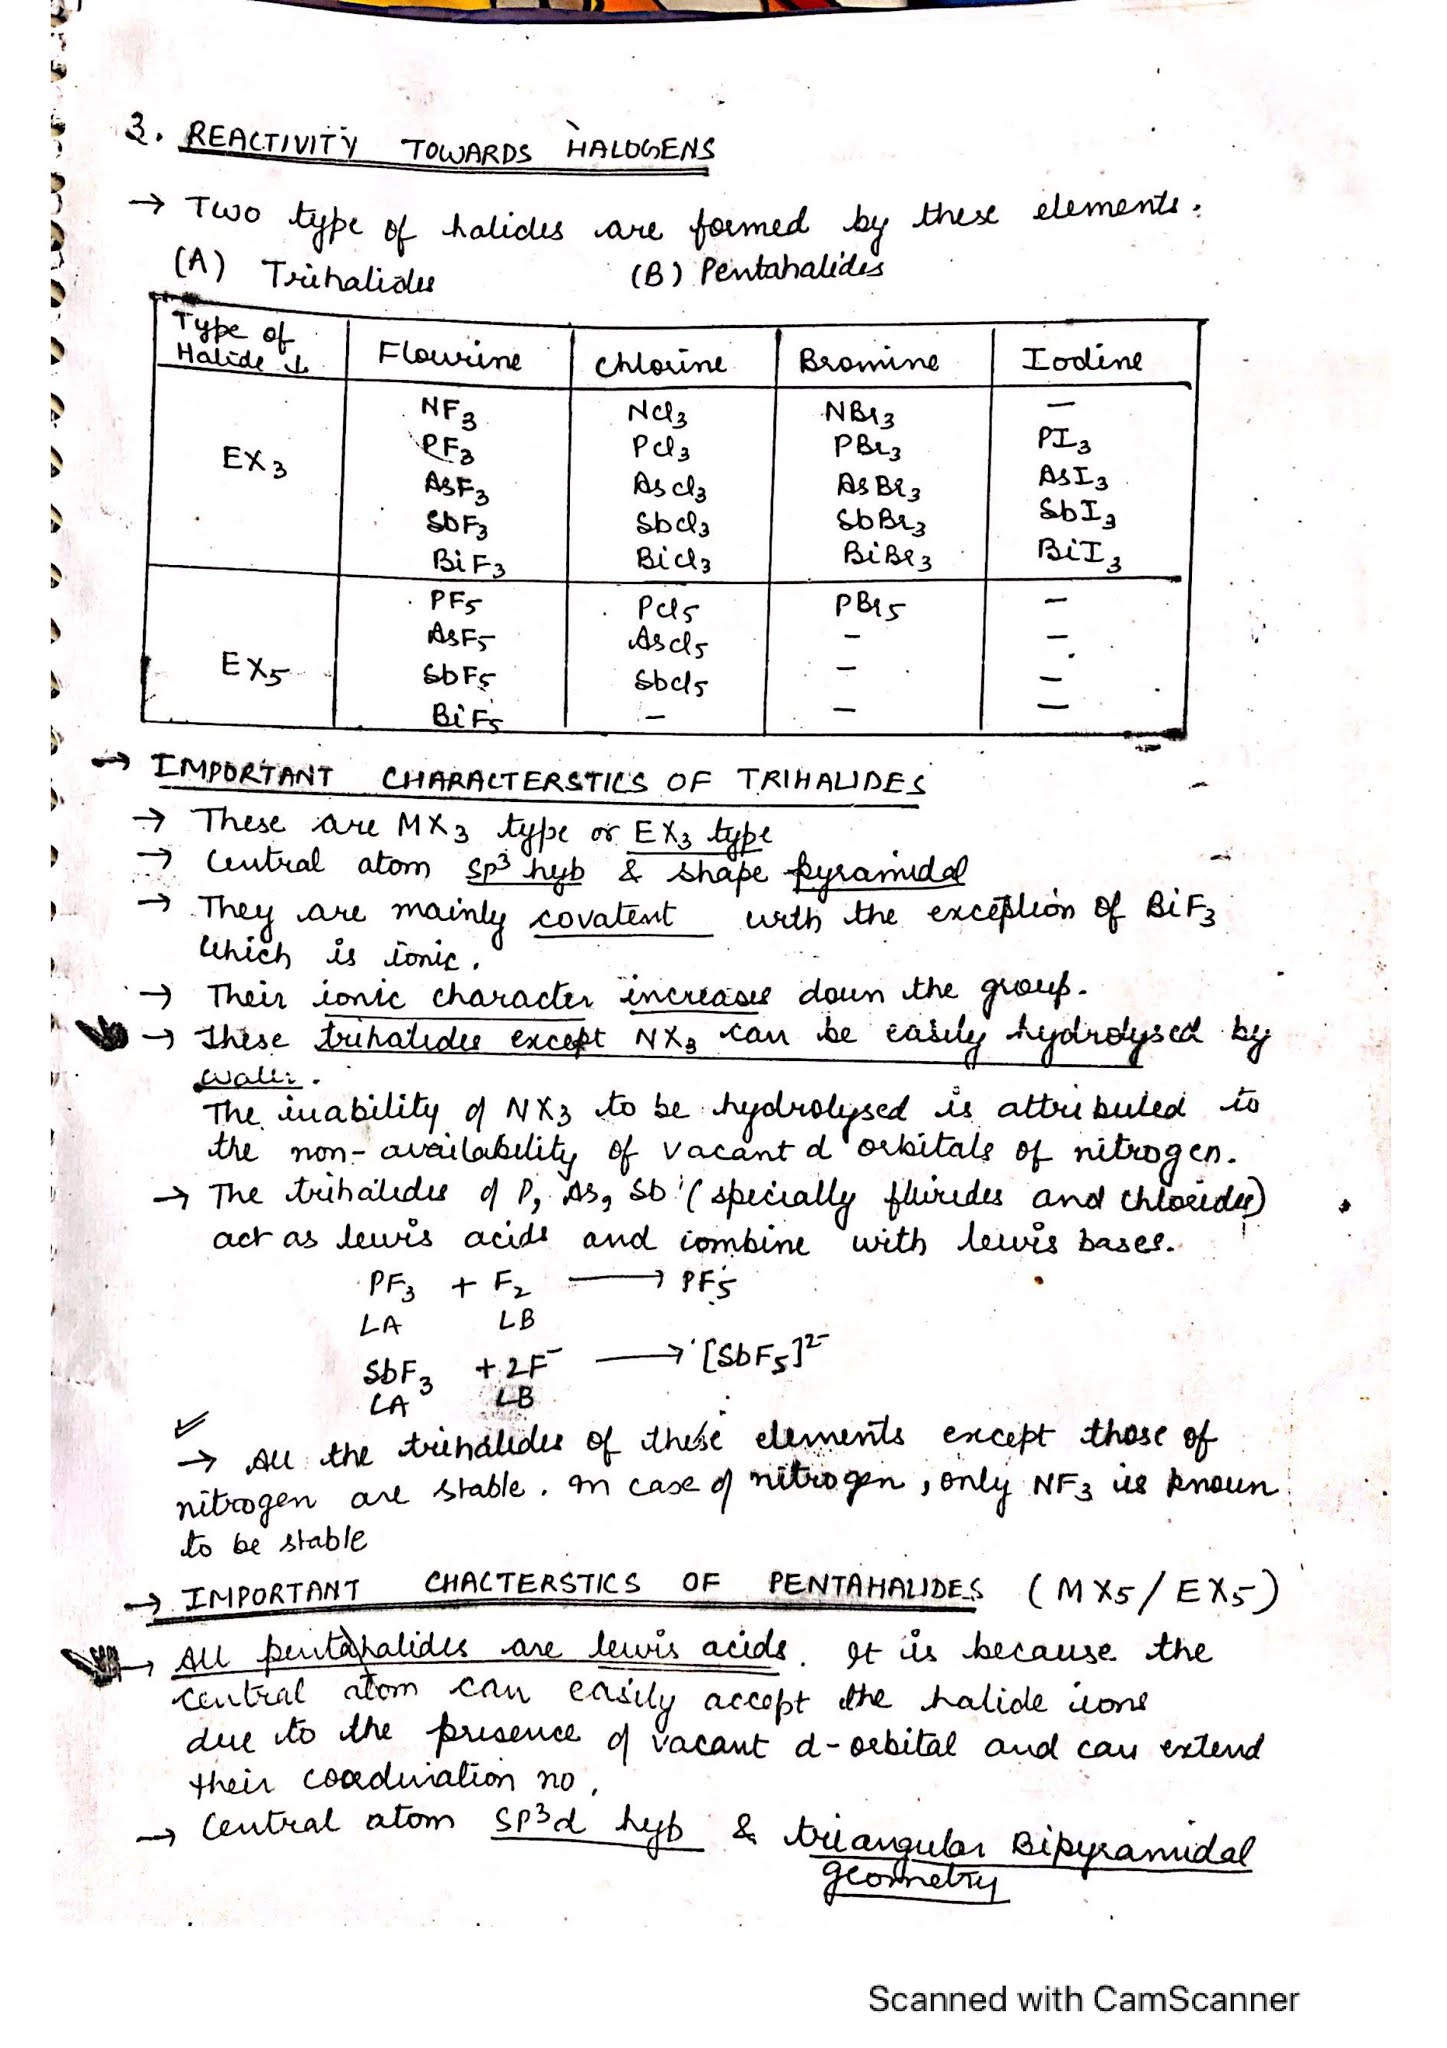 3. REACTIVITY TOWARDS HALOGENS
→ Two type of halides are formed by these elements.
(A) Trihalides (B) Pentahalides
Type of Halide ↓ Flourine Chlorine Bromine Iodine
EX3
NF3 NCl3 NBr3 —
PF3 PCl3 PBr3 PI3
AsF3 AsCl3 AsBr3 AsI3
SbF3 SbCl3 SbBr3 SbI3
BiF3 BiCl3 BiBr3 BiI3
EX5
PF5 PCl5 PBr5 —
AsF5 AsCl5 — —
SbF5 SbCl5 — —
BiF5 — — —
→ IMPORTANT CHARACTERSTICS OF TRIHALIDES
→ These are MX3 type or EX3 type
→ Central atom sp³ hyb & shape pyramidal
→ They are mainly covatent with the exception of BiF3
which is ionic.
→ Their ionic character increases down the group.
→ These trihalides except NX3 can be easily hydrolysed by
water.
The inability of NX3 to be hydrolysed is attributed to
the non-availability of vacant d orbitals of nitrogen.
→ The trihalides of P, As, Sb (specially flurides and chlorides)
act as lewis acids and combine with lewis bases.
PF3 + F2 ⟶ PF5
LA LB
SbF3 + 2F⁻ ⟶ [SbF5]²⁻
LA LB
→ All the trihalides of these elements except those of
nitrogen are stable. In case of nitrogen, only NF3 is known
to be stable
→ IMPORTANT CHACTERSTICS OF PENTAHALIDES (MX5/EX5)
→ All pentahalides are lewis acids. It is because the
central atom can easily accept the halide ions
due to the presence of vacant d-orbital and can extend
their coordination no.
→ Central atom sp³d hyb & triangular Bipyramidal
geometry
Scanned with CamScanner